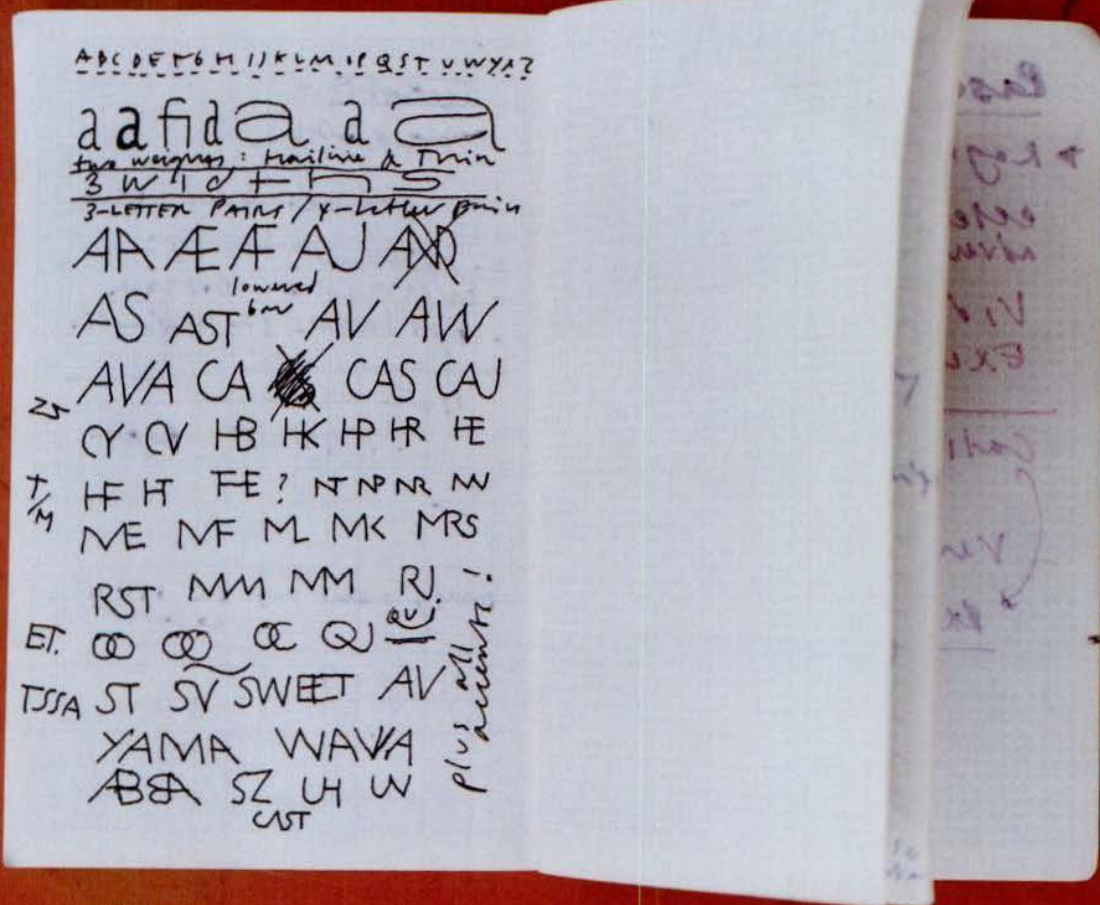 ABCDEFGHIJKLM.PQSTVWYXZ
a a fi d a d a
two weights: hairline & Thin
3 widths
3-LETTER PAIRS / 4-letter pairs
AA Æ Æ AJ
lowered bar
AS AST AV AW
AVA CA CAS CAJ
CY CV HB HK HP HR HE
HF HT FE? NT NP NR NW
T/M
ME MF ML MK MRS
RST MM MM RJ
QU
ET. OO OO OC QU
TSSA ST SV SWEET AV
YAMA WAVA
ABBA SZ UH UV
CAST
plus all accents!